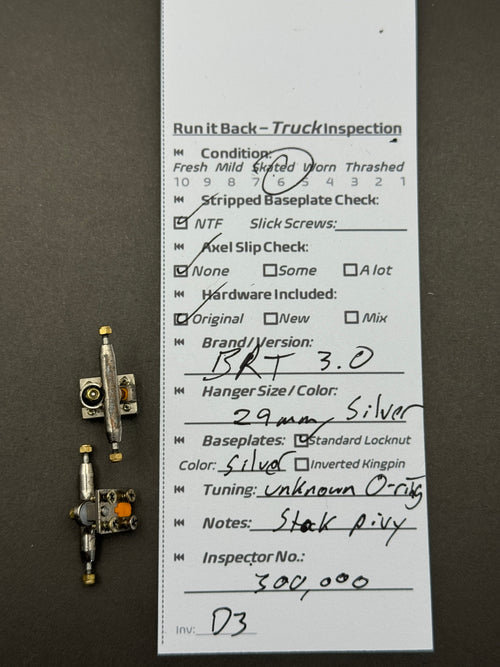 Run it Back – Truck Inspection
Condition:
Fresh Mild Skated Worn Thrashed
10 9 8 7 6 5 4 3 2 1
Stripped Baseplate Check:
NTF Slick Screws:
Axel Slip Check:
None Some A lot
Hardware Included:
Original New Mix
Brand/Version:
BRT 3.0
Hanger Size / Color:
29mm, Silver
Baseplates: Standard Locknut
Color: Silver Inverted Kingpin
Tuning: unknown O-ring
Notes: Stok pivy
Inspector No.:
300,000
Inv: D3